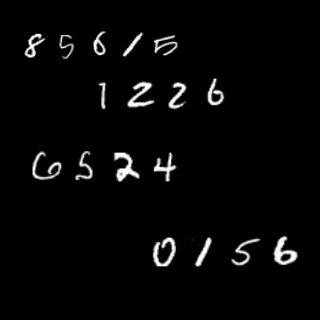 85615
1226
6524
0156